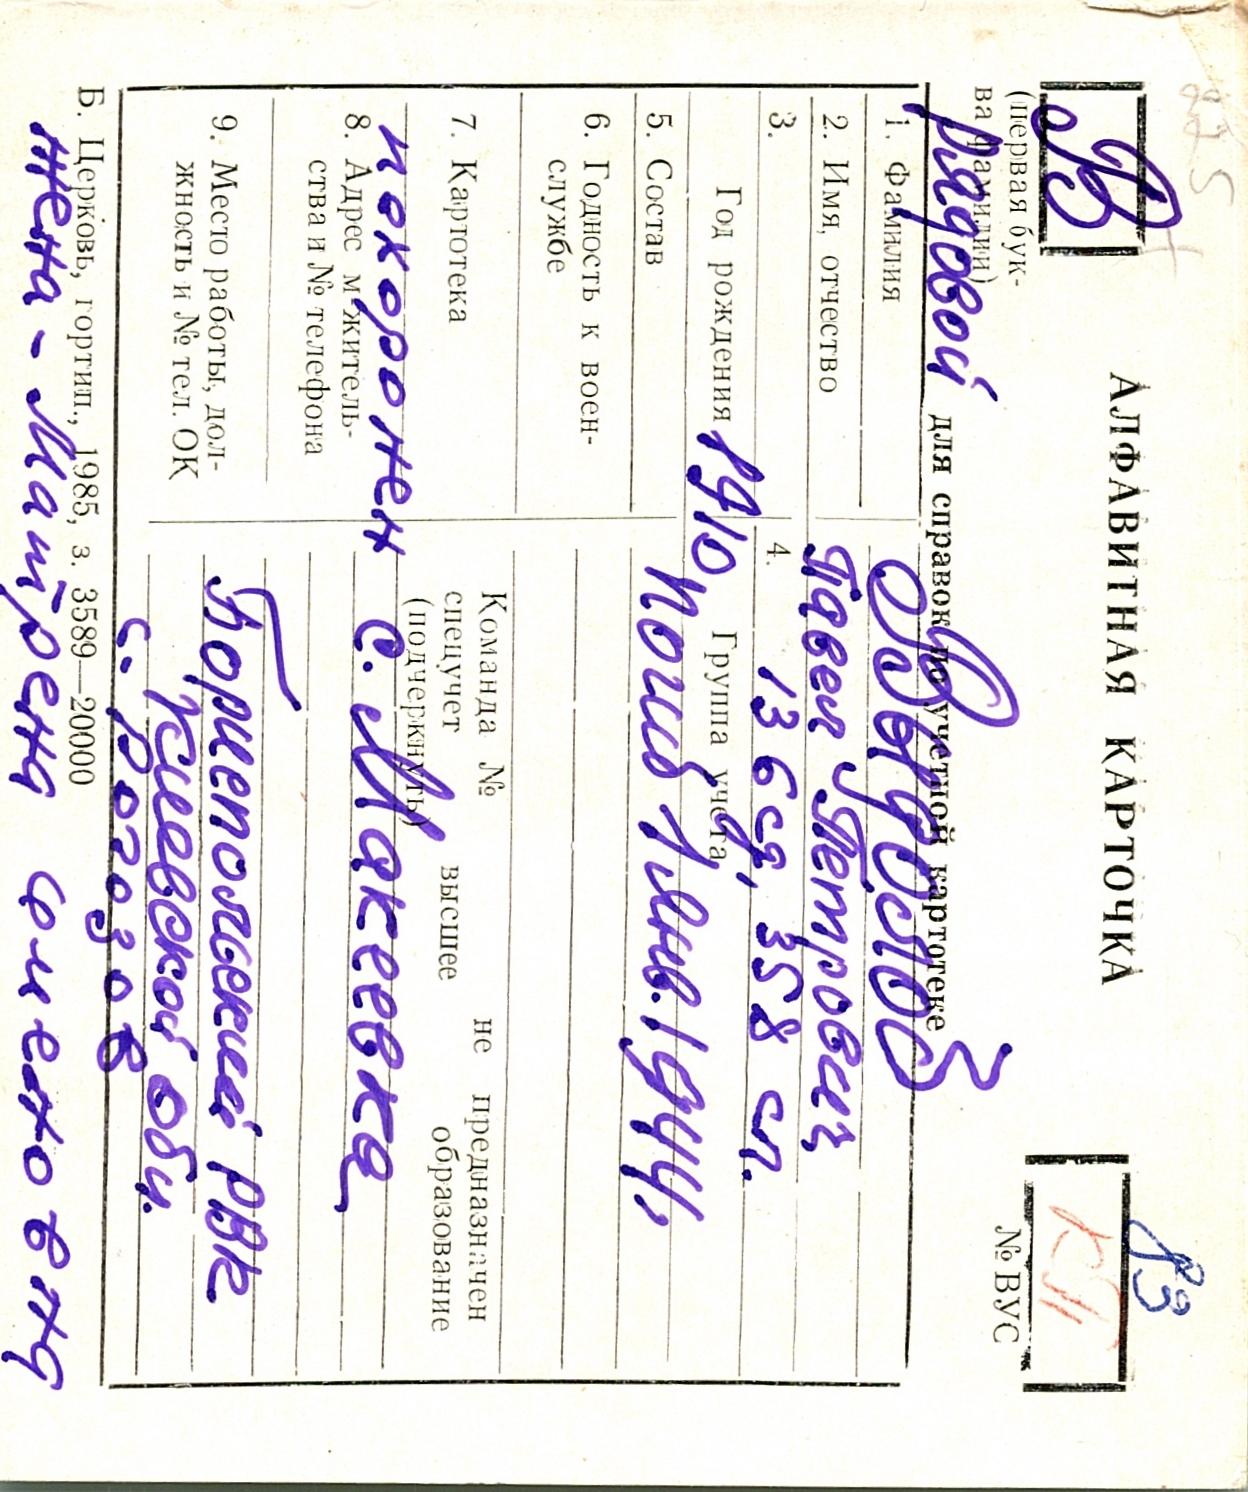 В
(первая бук-
ва фамилии)
АЛФАВИТНАЯ КАРТОЧКА
83
№ ВУС
рядовой
для справок по учетной картотеке
1. Фамилия
2. Имя, отчество
Павел Петрович
3.
4.
136 сд, 358 сп.
Год рождения 1910
Группа учёта
5. Состав
Погиб 1 янв. 1944,
6. Годность к воен-
службе
7. Картотека
Команда № не предназначен
спецучет высшее образование
(подчеркнуть)
похоронен с. Макеевка,
8. Адрес м-житель-
ства и № телефона
9. Место работы, дол-
жность и № тел. ОК
Бориспольский РВК
Киевской обл.
с. Рогозов
Б. Церковь, гортип., 1985, з. 3589—20000
жена - Матрена